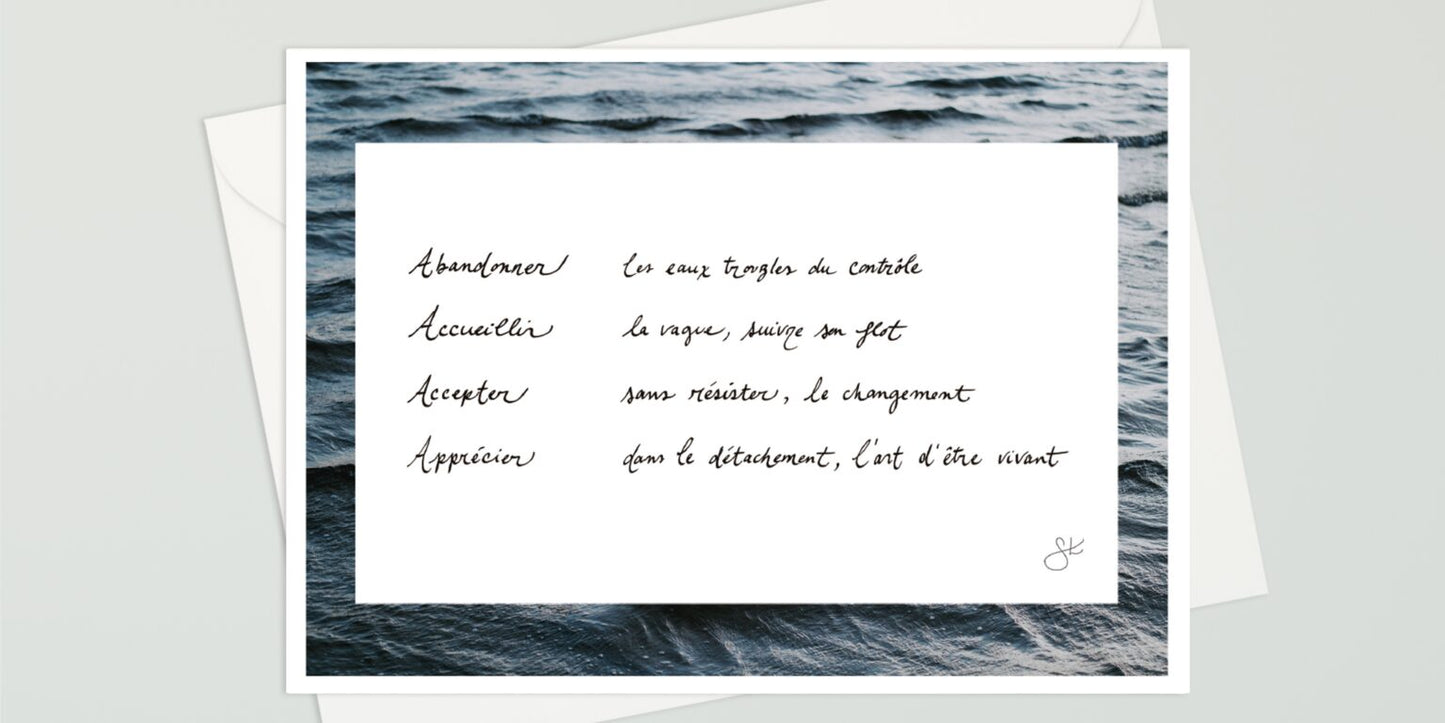 Abandonner les eaux troubles du contrôle
Accueillir la vague, suivre son flot
Accepter sans résister, le changement
Apprécier dans le détachement, l'art d'être vivant
SK